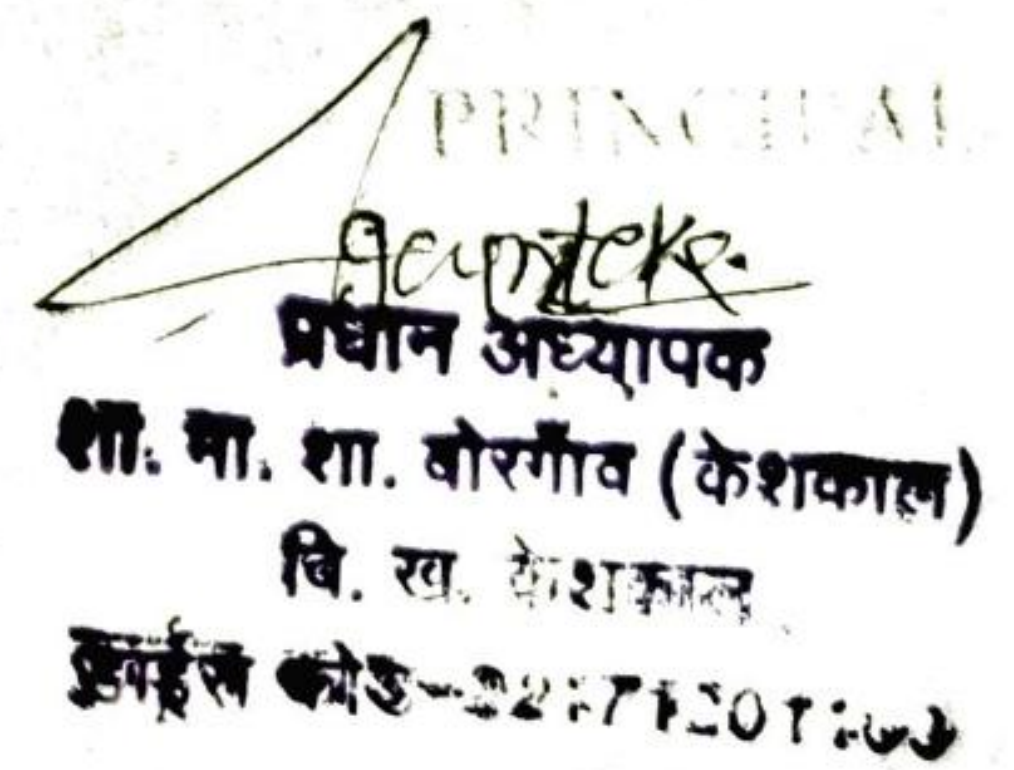 PRINCIPAL
प्रधान अध्यापक
शा. मा. शा. बोरगाँव (केशकाल)
वि. ख. केशकाल
कोड-